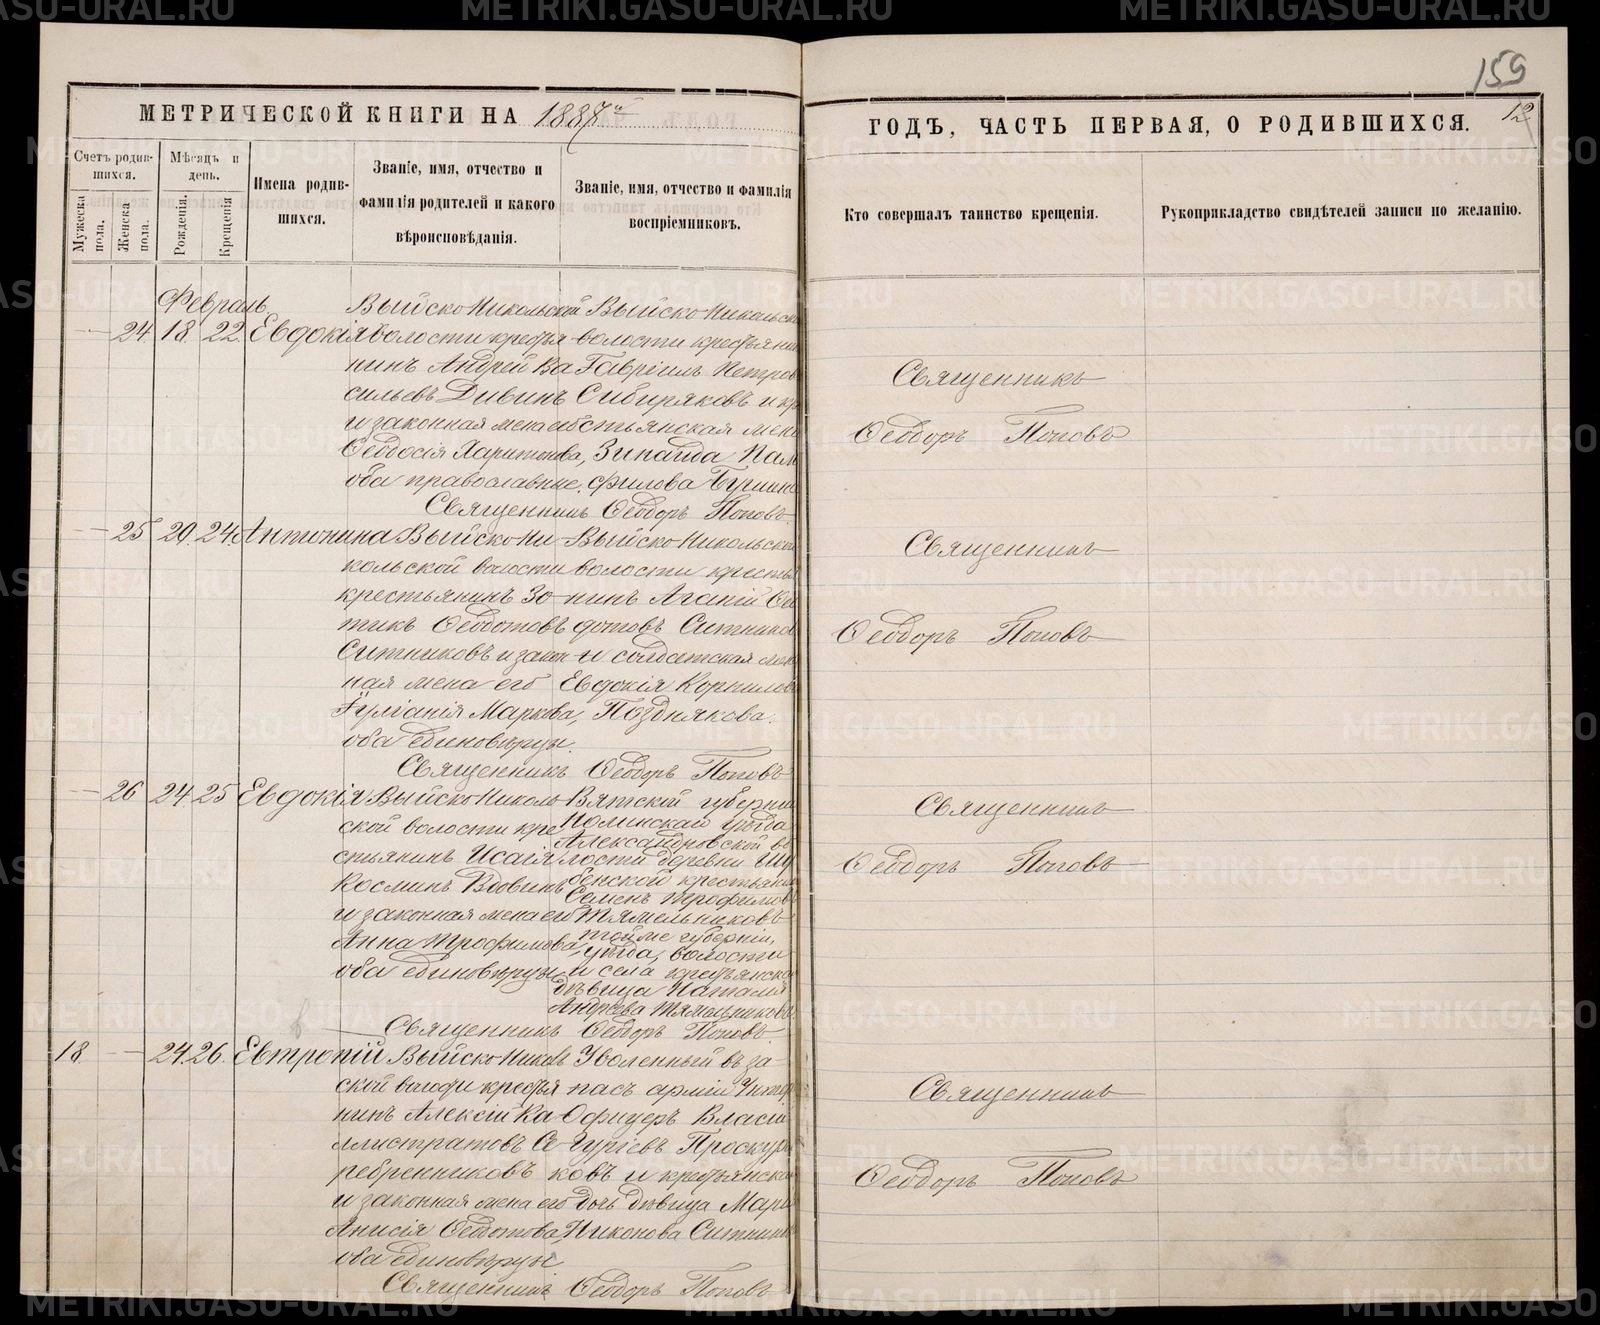 METRIKI.GASU-URAL.RU
159
12
МЕТРИЧЕСКОЙ КНИГИ НА 1887й
ГОДЪ, ЧАСТЬ ПЕРВАЯ, О РОДИВШИХСЯ.
Счетъ родив-
шихся.
Мужеска
пола.
Женска
пола.
Мѣсяцъ и
день.
Рожденія.
Крещенія
Имена родив-
шихся.
Званіе, имя, отчество и
фамилія родителей и какого
вѣроисповѣданія.
Званіе, имя, отчество и фамилія
воспріемниковъ.
Кто совершалъ таинство крещенія.
Рукоприкладство свидѣтелей записи по желанію.
Февраль
24 18 22 Евдокія
Выйско Никольской
волости крестья
нинъ Андрей Ва
сильевъ Дивинъ
и законная жена его
Ѳеодосія Харитонова,
оба православные.
Выйско Никольской
волости крестьянин
Гавріилъ Петров
Сибиряковъ и кре
стьянская жена
Зинаида Пам
филова
Священникъ Ѳеодоръ Поповъ.
Священникъ
Ѳеодоръ Поповъ
25 20. 24. Антонина
Выйско Ни
кольской волости
крестьянинъ Зо
тикъ Ѳеодотовъ
Ситниковъ и закон
ная жена его
Іуліанія Маркова,
оба единовѣрцы.
Выйско Никольской
волости крестья
нинъ Агапій Ѳео
дотовъ Ситников
и солдатская жена
Евдокія Корнилова
Позднякова.
Священникъ Ѳеодоръ Поповъ
Священникъ
Ѳеодоръ Поповъ
26 24. 25 Евдокія
Выйско Николь
ской волости кре
стьянинъ Исаія
Косминъ Вдовинъ
и законная жена его
Анна Трофимова,
оба единовѣрцы
Вятской губерніи
Нолинскаго уѣзда
Александровской во
лости деревни
крестьянин
Семенъ Трофимов
Тямельниковъ
той же губерніи,
уѣзда, волости
и села крестьянская
дѣвица Наталія
Андреева Тямельникова
Священникъ Ѳеодоръ Поповъ
Священникъ
Ѳеодоръ Поповъ
18. 24. 26. Евтропій
Выйско Николь
ской волости крестья
нинъ Алексій Ка
ллистратовъ Се
ребренниковъ
и законная жена его
Анисія Ѳеодотова,
оба единовѣрцы
Уволенный въ за
пасъ арміи Унтеръ
Офицеръ Власій
Гуріевъ Проскуря
ковъ и крестьянская
дочь дѣвица Марія
Никонова Ситникова
Священникъ Ѳеодоръ Поповъ
Священникъ
Ѳеодоръ Поповъ